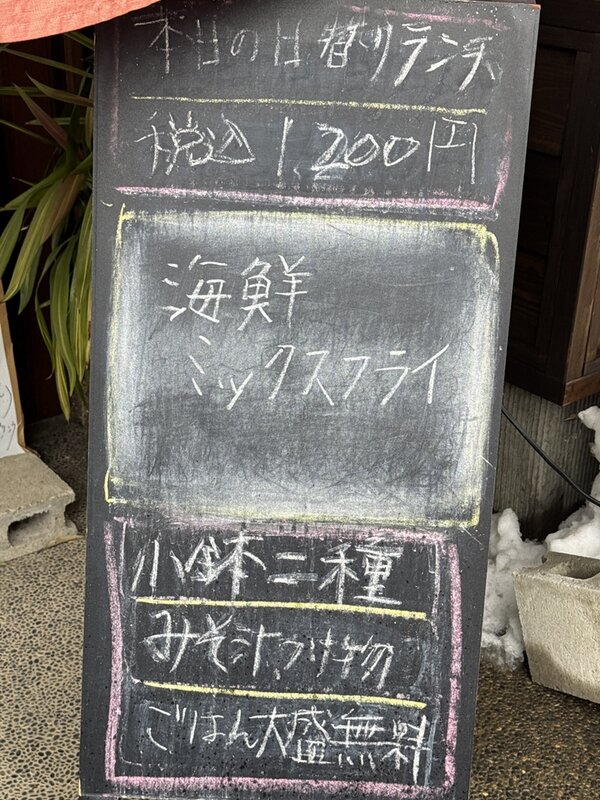 本日の日替りランチ
税込 1,200円
海鮮
ミックスフライ
小鉢二種
みそ汁、つけ物
ごはん大盛無料